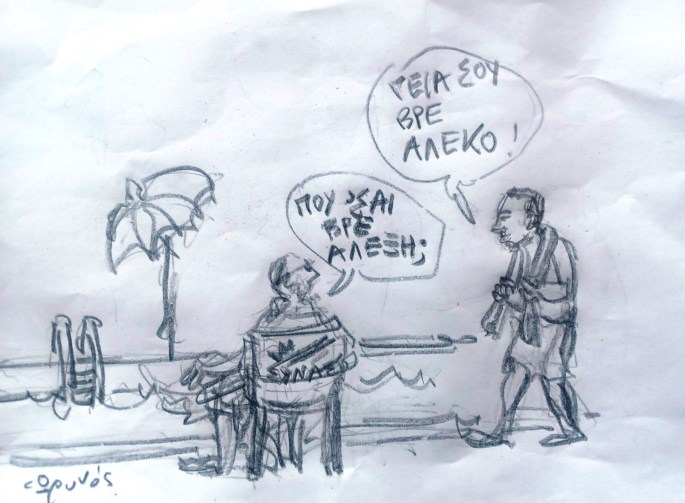 ΓΕΙΑ ΣΟΥ
ΒΡΕ
ΑΛΕΚΟ!
ΠΟΥ 'ΣΑΙ
ΒΡΕ
ΑΛΕΞΗ;
ΣΥΝΑΞ